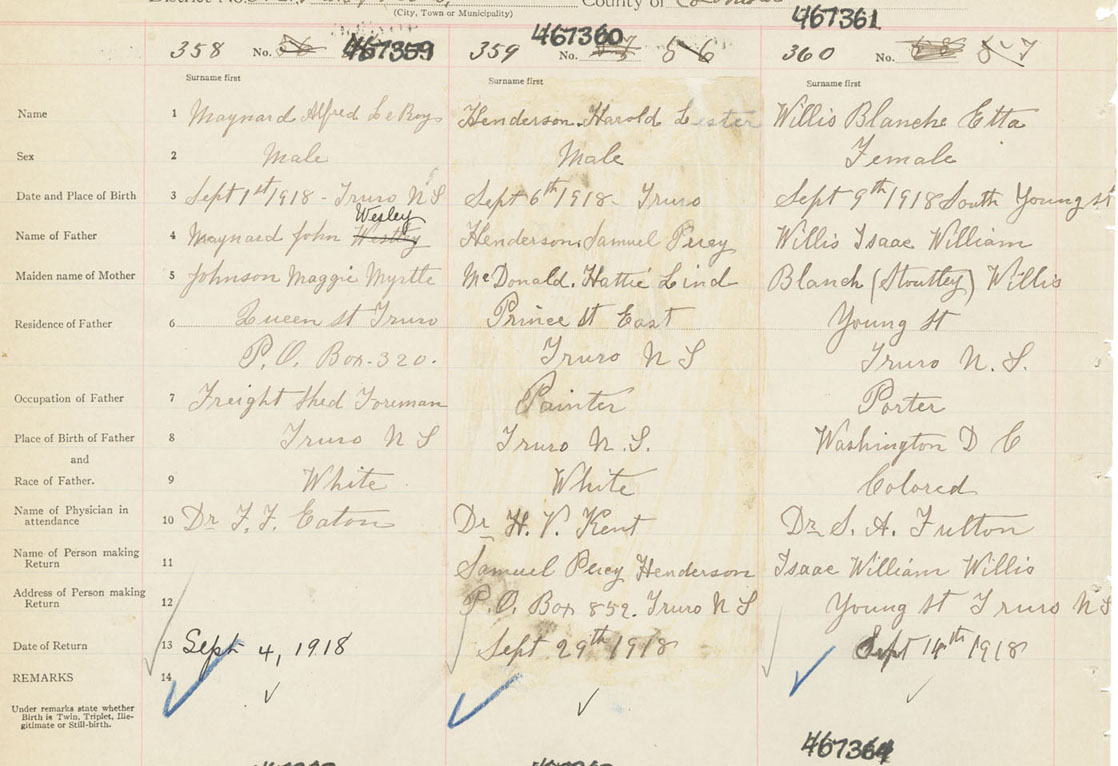 District No. County of
(City, Town or Municipality)
467361
358 No. 467359 359 467360 No. 57 56 360 No. 58 57
Surname first Surname first Surname first
Name 1 Maynard Alfred LeRoy Henderson. Harold Lester Willis Blanche Etta
Sex 2 Male Male Female
Date and Place of Birth 3 Sept 1st 1918 - Truro N S Sept 6th 1918 - Truro Sept 9th 1918 South Young st
Wesley
Name of Father 4 Maynard John Henderson. Samuel Percy Willis Isaac William
Maiden name of Mother 5 Johnson Maggie Myrtle McDonald. Hattie Lind Blanch (Stoutley) Willis
Residence of Father 6 Queen st Truro Prince st East Young st
P.O. Box-320. Truro N S Truro N.S.
Occupation of Father 7 Freight Shed Foreman Painter Porter
Place of Birth of Father 8 Truro N S Truro N.S. Washington D C
and
Race of Father. 9 White White Colored
Name of Physician in
attendance 10 Dr F. F. Eaton Dr H. V. Kent Dr S. A. Fulton
Name of Person making
Return 11 Samuel Percy Henderson Isaac William Willis
Address of Person making
Return 12 P.O. Box 852. Truro N S Young st Truro N S
Date of Return 13 Sept 4, 1918 Sept 29th 1918 Sept 14th 1918
REMARKS 14
Under remarks state whether
Birth is Twin, Triplet, Ille-
gitimate or Still-birth.
467364